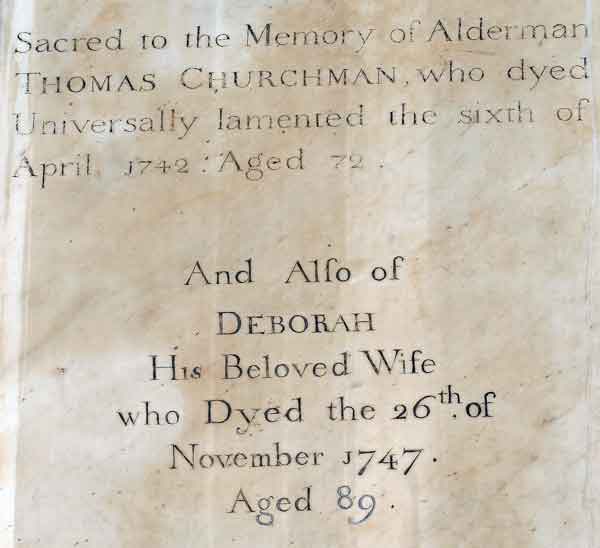 Sacred to the Memory of Alderman
THOMAS CHURCHMAN, who dyed
Universally lamented the sixth of
April 1742: Aged 72.
And Alſo of
DEBORAH
His Beloved Wife
who Dyed the 26th. of
November 1747.
Aged 89.